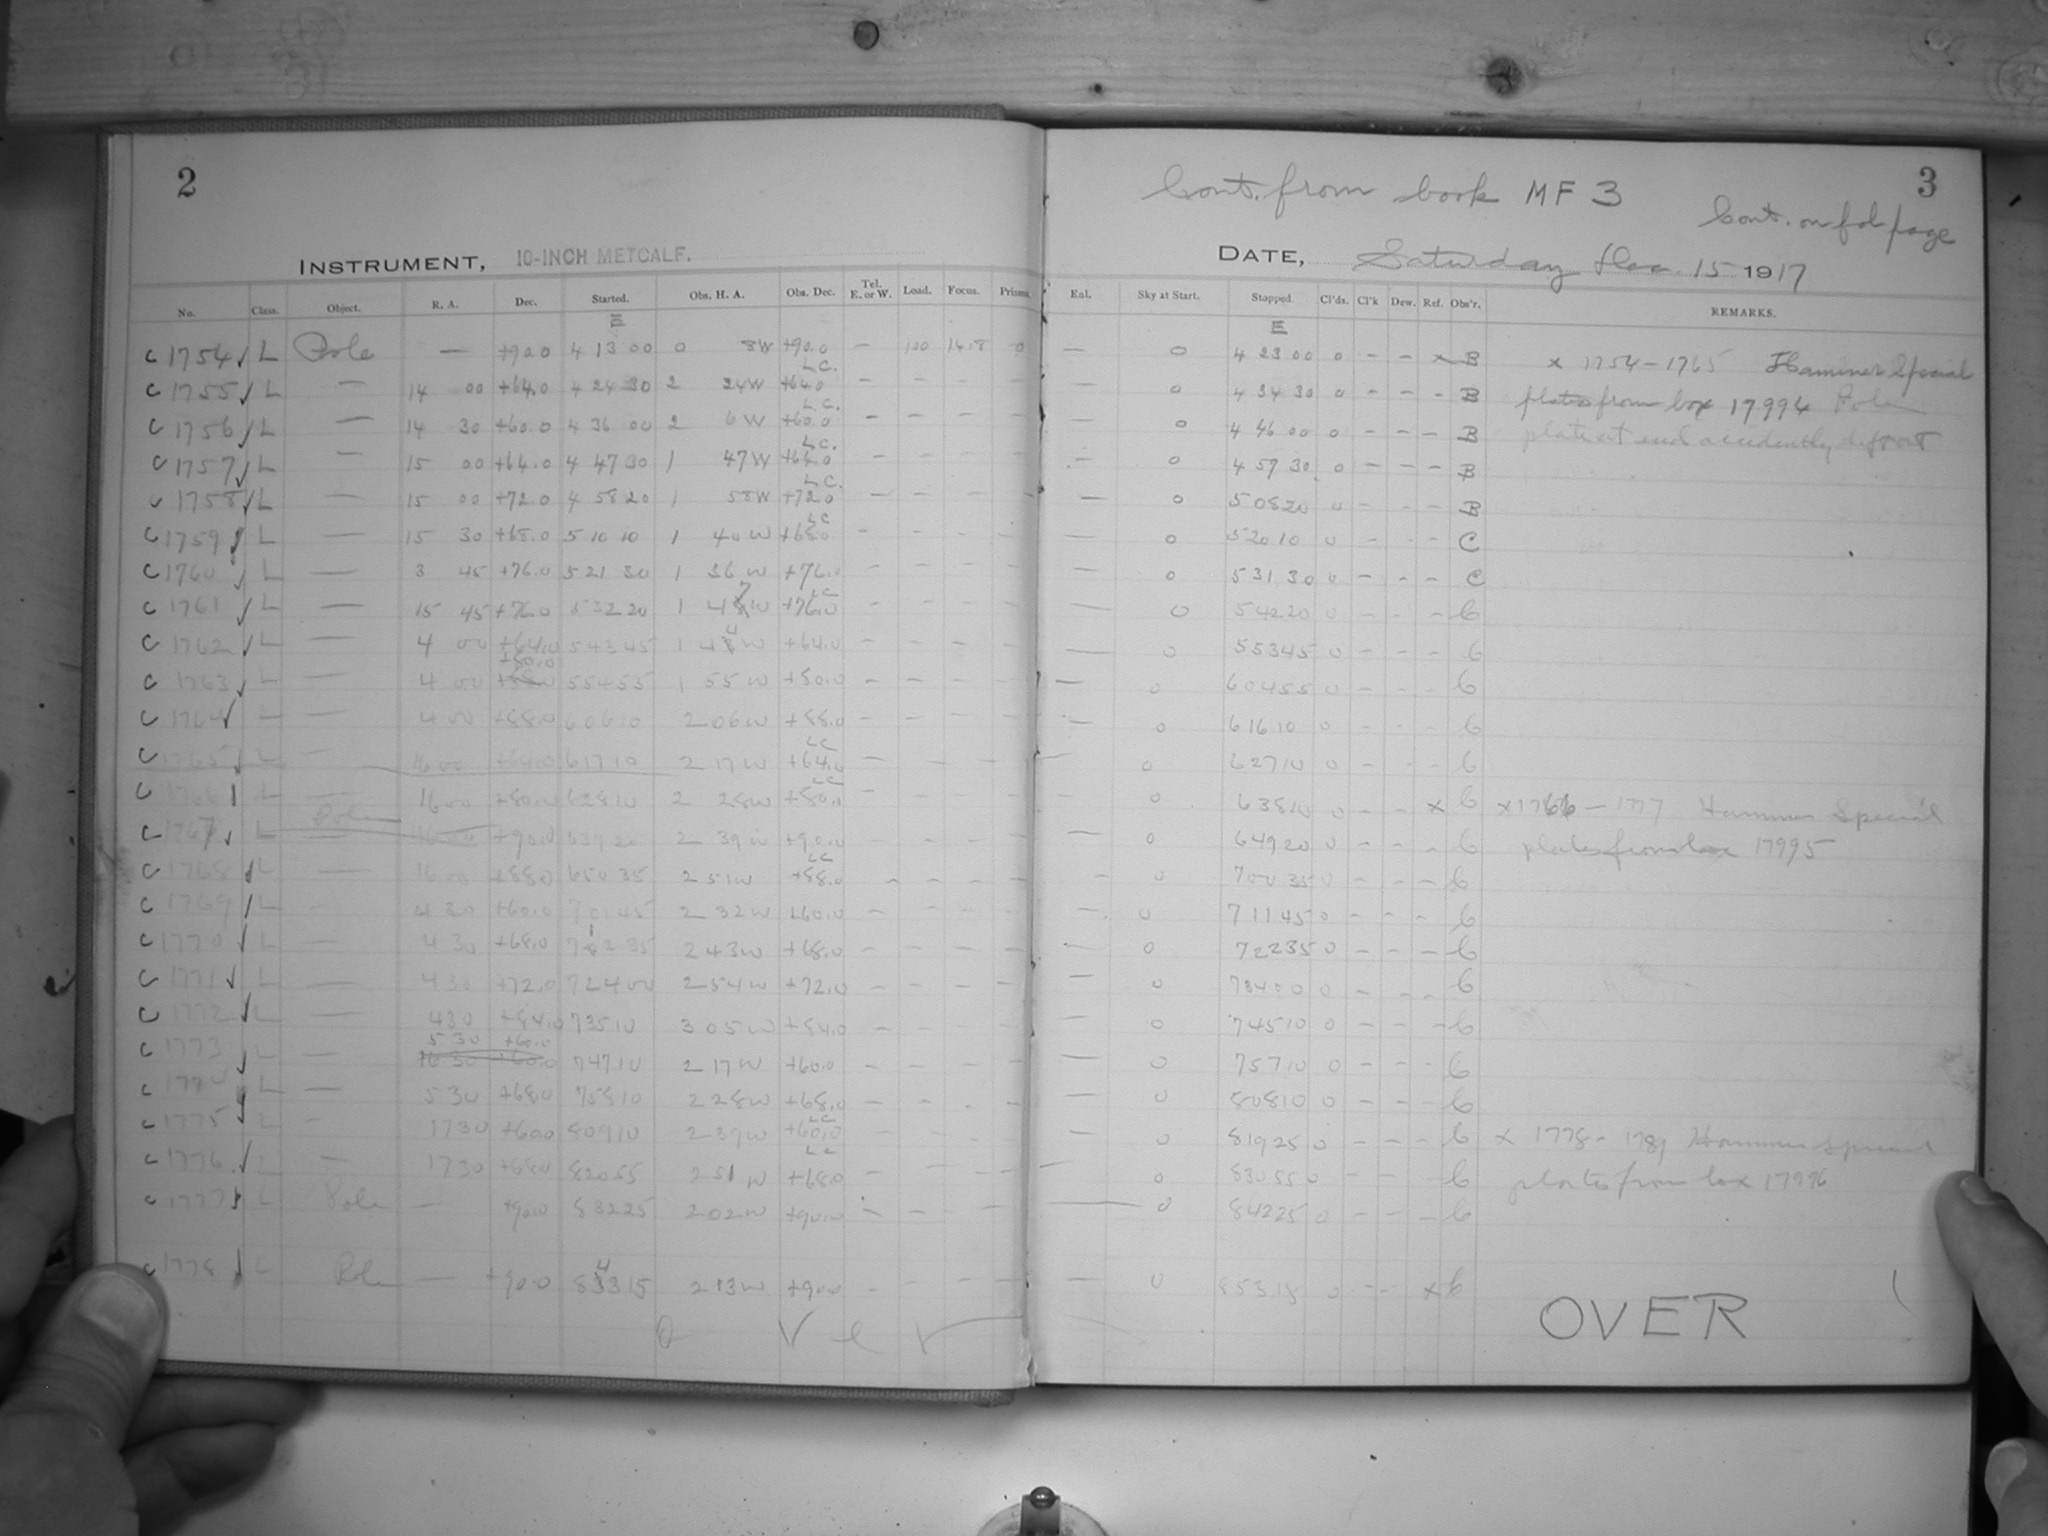 2
INSTRUMENT, 10-INCH METCALF.
No. Class. Object. R. A. Dec. Started. Obs. H. A. Obs. Dec. Tel. E. or W. Load. Focus. Prisms.
E
C 1754 L Pole — +90.0 4 13 00 0 8W +90.0 — 100 14.8 0
C 1755 L — 14 00 +64.0 4 24 30 2 24W L.C. +64.0 – – – –
C 1756 L — 14 30 +60.0 4 36 00 2 6W L.C. +60.0 – – – –
C 1757 L — 15 00 +64.0 4 47 30 1 47W L.C. +64.0 – – – –
C 1758 L — 15 00 +72.0 4 58 20 1 58W L.C. +72.0 – – – –
C 1759 L — 15 30 +68.0 5 10 10 1 40W LC +68.0 – – – –
C 1760 L — 3 45 +76.0 5 21 30 1 36W +76.0 – – – –
C 1761 L — 15 45 +76.0 5 32 20 1 47W LC +76.0 – – – –
C 1762 L — 4 00 +64.0 5 43 45 1 44W +64.0 – – – –
C 1763 L — 4 00 +80.0 5 54 55 1 55W +80.0 – – – –
C 1764 L — 4 00 +88.0 6 06 10 2 06W +88.0 – – – –
C 1765 L – 16 00 +64.0 6 17 10 2 17W LC +64.0 – – – –
C 1766 L — 16 00 +80.0 6 28 10 2 28W LC +80.0 – – – –
C 1767 L Pole +90.0 6 39 20 2 39W +90.0 – – – –
C 1768 L — 16 00 +88.0 6 50 35 2 51W LC +88.0 – – – –
C 1769 L — 4 30 +60.0 7 01 45 2 32W +60.0 – – – –
C 1770 L — 4 30 +68.0 7 12 35 2 43W +68.0 – – – –
C 1771 L — 4 30 +72.0 7 24 00 2 54W +72.0 – – – –
C 1772 L — 4 30 +84.0 7 35 10 3 05W +84.0 – – – –
C 1773 L — 5 30 +60.0 7 47 10 2 17W +60.0 – – – –
C 1774 L — 5 30 +68.0 7 58 10 2 28W +68.0 – – – –
C 1775 L – 17 30 +60.0 8 09 10 2 39W LC +60.0
C 1776 L — 17 30 +68.0 8 20 55 2 51W LC +68.0 – – – –
C 1777 L Pole — +90.0 8 32 25 2 02W +90.0 – – – –
C 1778 L Pole — +90.0 8 43 15 2 13W +90.0 – – – –
Over
3
Cont. from book MF 3
Cont. on fol page
DATE, Saturday Dec. 15 1917
Eul. Sky at Start. Stopped Cl'ds. Cl'k Dew. Ref. Obs'r. REMARKS.
E
— 0 4 23 00 0 – – x B x 1754 – 1765 Hammer Special
– 0 4 34 30 0 – – – B plates from box 17994 Pole
– 0 4 46 00 0 – – – B plate at end accidently left out
– 0 4 57 30 0 – – – B
— 0 5 08 20 0 – – – B
— 0 5 20 10 0 – – – C
— 0 5 31 30 0 – – – C
— 0 5 42 20 0 – – – C
— 0 5 53 45 0 – – – C
— 0 6 04 55 0 – – – C
— 0 6 16 10 0 – – – C
— 0 6 27 10 0 – – – C
— 0 6 38 10 0 – – x C x 1766 – 1777 Hammer Special
— 0 6 49 20 0 – – – C plates from box 17995
– 0 7 00 35 0 – – – C
– 0 7 11 45 0 – – – C
— 0 7 22 35 0 – – – C
— 0 7 34 00 0 – – – C
— 0 7 45 10 0 – – – C
— 0 7 57 10 0 – – – C
— 0 8 08 10 0 – – – C
— 0 8 19 25 0 – – – C x 1778 – 1789 Hammer Special
— 0 8 30 55 0 – – – C plates from box 17996
— 0 8 42 25 0 – – – C
— 0 8 53 15 0 – – x C
OVER